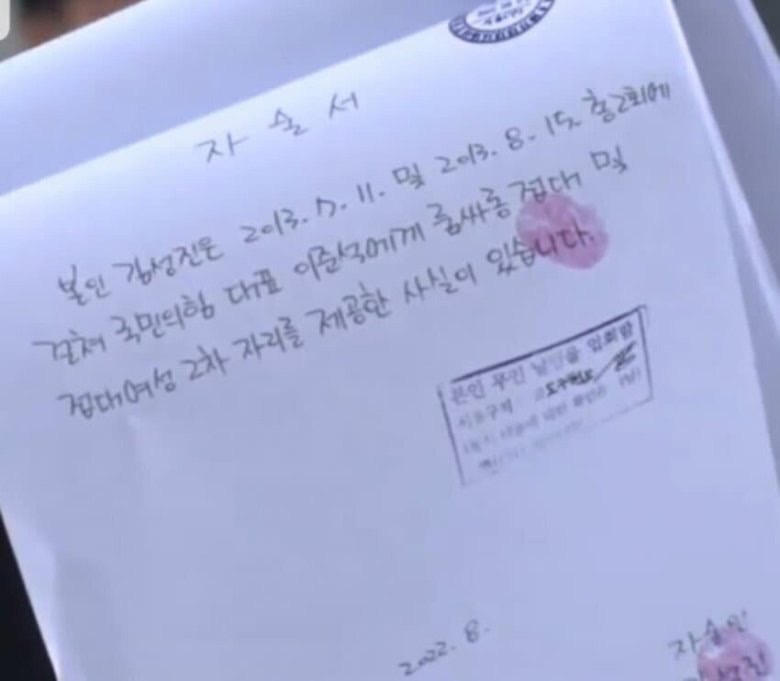 자술서
본인 김성진은 2013.7.11. 및 2013.8.15. 총2회에
걸쳐 국민의힘 대표 이준석에게 룸싸롱 접대 및
접대여성 2차 자리를 제공한 사실이 있습니다.
본인 무인 날인을
2022.8.
자술인